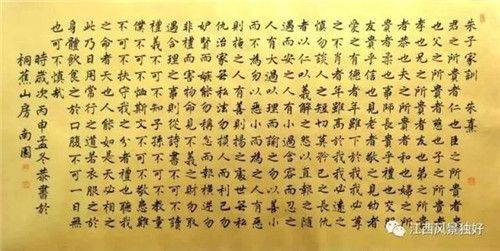 朱子家訓 朱熹
君之所貴者仁也臣之所貴者忠
也父之所貴者慈也子之所貴者
孝也兄之所貴者友也弟之所貴
者恭也夫之所貴者和也婦之所
貴者柔也事師長貴乎禮也交朋
友貴乎信也見老者敬之見幼者
愛之有德者年雖下於我我必尊
之不肖者年雖高於我我必遠之
慎勿談人之短切莫矜己之長仇
者以義解之怨者以直報之隨所
遇而安之人有小過含容而忍之
人有大過以理而諭之勿以善小
而不為勿以惡小而為之人有惡
則掩之人有善則揚之處世無私
仇治家無私法勿損人而利己勿
妒賢而嫉能勿稱忿而報橫逆勿
非禮而害物命見不義之財勿取
遇合理之事則從詩書不可不讀
禮義不可不知子孫不可不教童
僕不可不恤斯文不可不敬患難
不可不扶守我之分者禮也聽我
之命者天也人能如是天必相之
此乃日用常行之道若衣服之於
身體飲食之於口腹不可一日無
也可不慎哉
時歲次丙申孟冬恭書於
桐蕉山房 南圃
江西风景独好